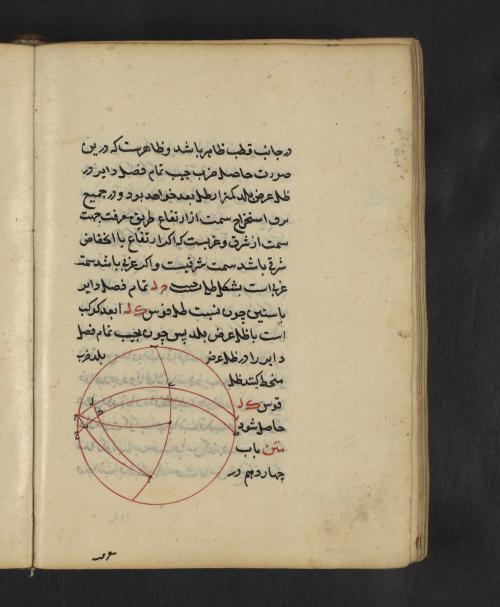 در جانب قطب ظاهر باشد و ظاهرست که درین
صورت حاصل ضرب جیب تمام فضل دایر در
ظل عرض بلد کمتر از ظل بعد خواهد بود و در جمیع
استخراج سمت از ارتفاع طریق معرفت جهت
سمت از شرق و غربست که اکر ارتفاع یا انخفاض
شرقی باشد سمت شرقیست و اکر غربی باشد سمت
غربی است بشکل ظلی جیب تمام فضل دایر
یا ستین چون نسبت ظل قوس ابعد کوکب
است با ظل عرض بلد پس چون جیب تمام فضل
دایر را در ظل عرض بلد ضرب
منحط کنند ظل
قوس
حاصل شود
متن باب
چهاردهم در